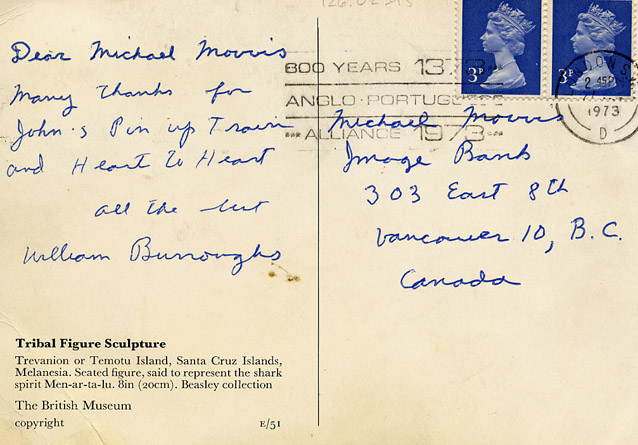 Dear Michael Morris
Many Thanks for
John's Pin up Train
and Heart to Heart
all the best
William Burroughs
Tribal Figure Sculpture
Trevanion or Temotu Island, Santa Cruz Islands,
Melanesia. Seated figure, said to represent the shark
spirit Men-ar-ta-lu. 8in (20cm). Beasley collection
The British Museum
copyright
E/51
3P
3P
600 YEARS 1373
ANGLO·PORTUGUESE
ALLIANCE 1973
2 45P
1973
D
Michael Morris
Image Bank
303 East 8th
Vancouver 10, B.C.
Canada